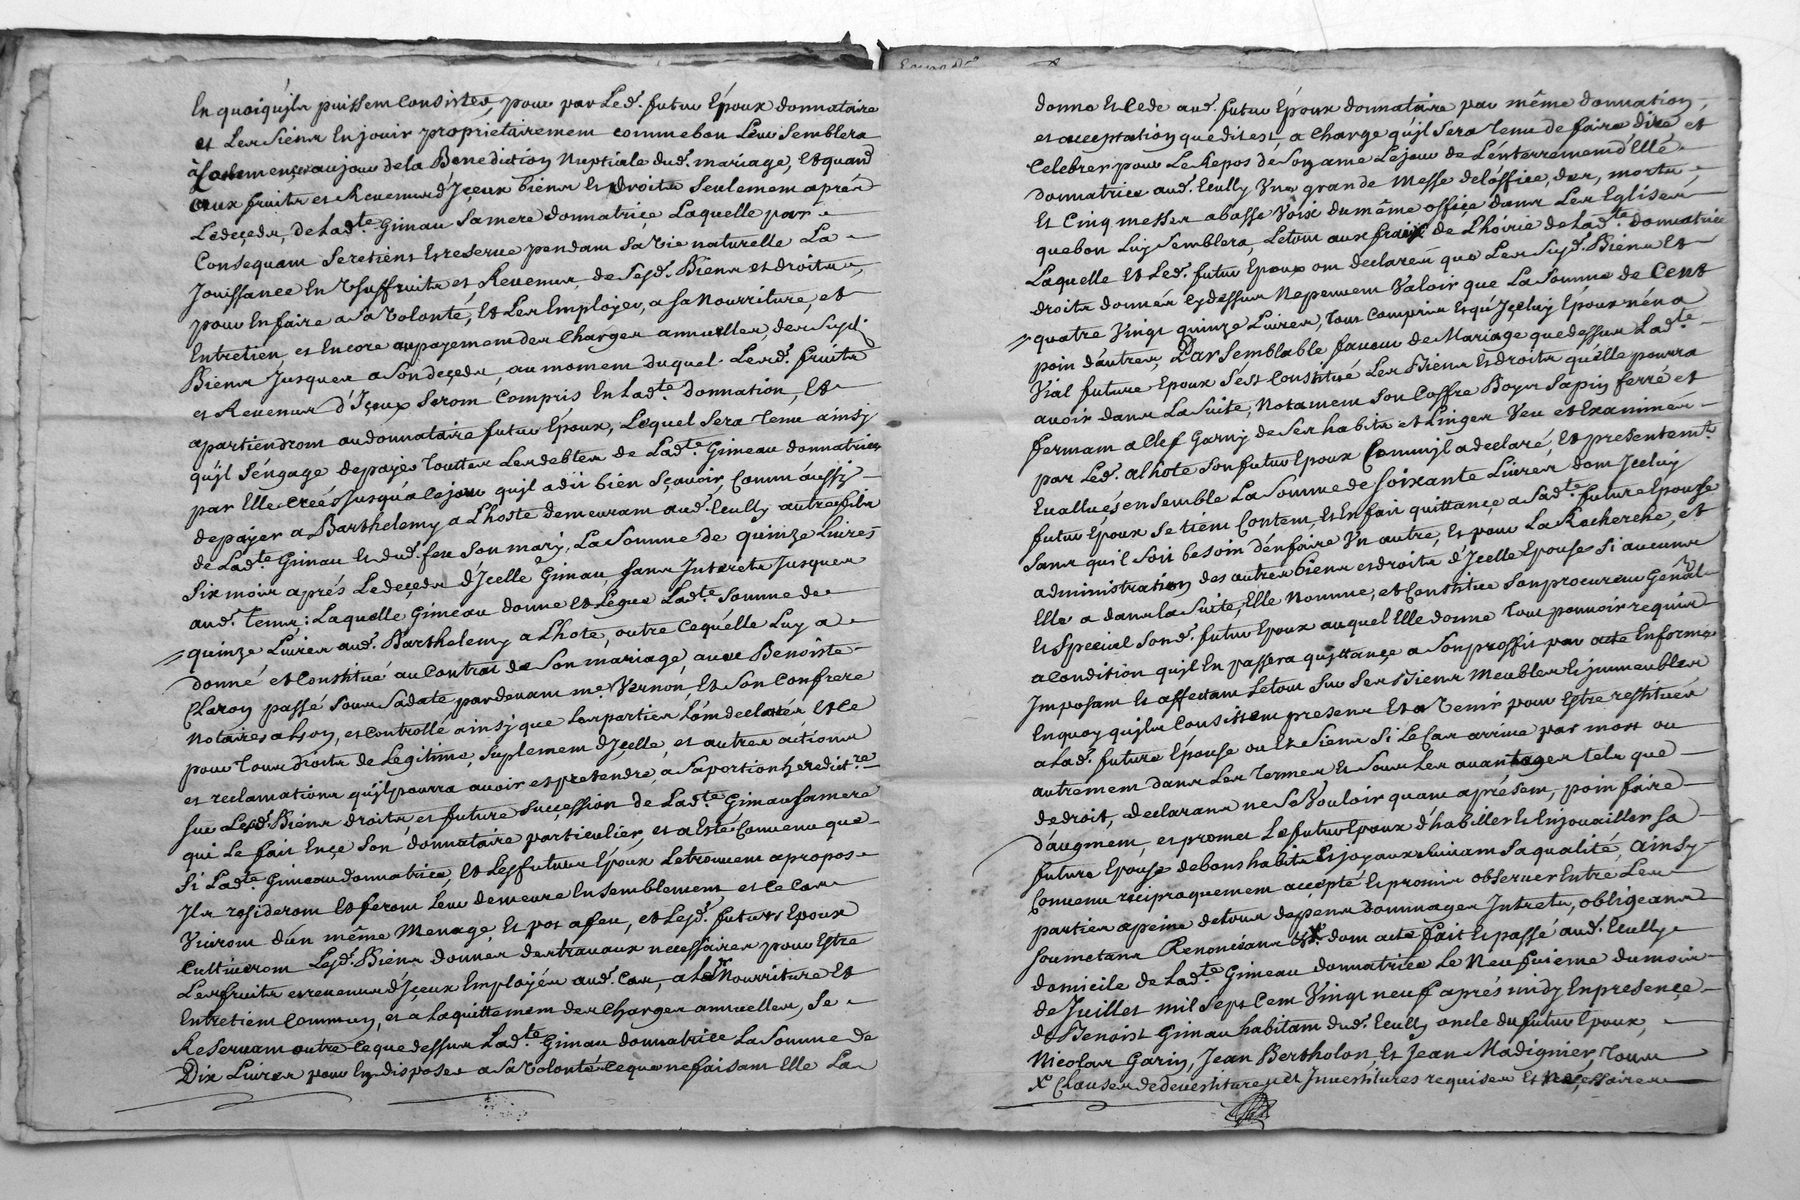 En quoiqu'jls puissem consister, pour par Led. futur Epoux donnataire
et Les siens En jouir proprietairemem comme bon Leur semblera
à Commencer au jour de la Benediction Nuptiale dud. mariage, Et quand
aux fruits et Revenus d'Jçeux biens Et droits seulemem aprés
Ledeçeds, de Lad.te Gimau sa mere donnatriçe Laquelle par
Consequam se retiens Et reserve pendam sa vie naturelle La
Jouissance En Usuffruits et Revenus, de sesd. Biens et droits,
pour En faire a sa volonté, Et Les Employer, a sa Nourriture, et
Entretien, et Encore au payemem des Charges annuelles, des susd.
Biens Jusques a son deçeds, au momem duquel Lesd. fruits
et Revenus d'Jçeux serom Compris En Lad.te donnation, Et
apartiendrom au donnataire futur Epoux, Lequel sera tenu ainsy
qu'jl s'engage de payer touttes Les debtes de Lad.te Gimeau donnatrice
par Elle créés Jusqu'a cejour qu'jl a dit bien sçavoir, Comm'aussy
de payer a Barthelemy a Lhoste demeuram aud. Ecully autre fils
de Lad.te Gimau Et dud. feu son mary, La somme de quinze Livres
six mois aprés Ledeçeds d'Jcelle Gimau, sans Interets Jusques
aud. tems; Laquelle Gimeau donne Et Legue Lad.te somme de
quinze Livres aud. Barthelemy a Lhote, outre cequ'elle Luy a
donné et Constitué au Contrat de son mariage avec Benoiste
Claron passé sous sa date pardevam me. Vernon Et son Confrere
Notaires a Lyon, et Controllé ainsy que Les parties L'om declarés Et ce
pour tous droits de Legitime, suplemem d'Jçelle, et autres actions
et reclamations qu'jl pourra avoir et pretendre, a sa portion heredit.re
sur Lesd. Biens droits et future Succession de Lad.te Gimau sa mere
qui Le fait Ençe son donnataire particulier, et a Esté Convenu que
si Lad.te Gimeau donnatrice, Et Lesd futurs Epoux Le trouvem a propos
Jls residerom Et ferom Leur demeure Ensemblemem et ce Cas
Vivrom d'un même Menage, Et pot a feu, et Lesd. futurs Epoux
Cultiverom Lesd. Biens donnés des travaux necessaires pour Estre
Les fruits et revenus d'Jçeux Employés aud. Cas, a Leur Nourriture Et
Entretiens Commun, et a Laquittemem des Charges annuelles, Se
Reservam outre ce que dessus Lad.te Gimau donnatrice La somme de
Dix Livres pour En disposer a sa volonté ce que ne faisam Elle La
donne Et Cede aud. futur Epoux donnataire par même donnation,
et acceptation que dit est, a charge qu'jl sera tenu de faire dire et
Celebrer pour Le Repos de son ame Le jour de L'enterremem d'Elle
donnatrice aud. Ecully Une grande Messe de Loffice, des, morts,
Et Cinq messes a basse Voix du même office dans Les Eglises
que bon Luy semblera, Letout aux fraix de L'hoirie de Lad.te donnatrice
Laquelle Et Led. futur Epoux om declarés que Les susd. Biens Et
droits donnés cydessus Nepeuvem Valoir que La somme de Cent
quatre Vingt quinze Livres, tous compris Et qu'Jceluy Epoux n'en a
poin d'autres, Par semblable faveur de Mariage que dessus Lad.te
Vial future Epoux s'est Constitué Les Biens Et droits qu'elle pourra
avoir dans La suite, Notamem son Coffre Boys Sapin ferré et
fermam a Clef Garny de ses habits et Linges Veu et Examinés
par Led. alhote son futur Epoux Comm'jl a declaré, Et presentem.t
Evallués ensemble La somme de soixante Livres dom Jceluy
futur Epoux se tiem Contem, Et En fait quittançe a sad.te future Epouse
sans qu'il soit besoin d'en faire Un autre, Et pour La Recherche, et
administration des autres biens et droits d'Jcelle Epouse si aucuns
Elle a dans la suite, Elle Nomme, et Constitue son procureur Genal
Et special sond. futur Epoux auquel Elle donne tout pouvoir requis
a Condition qu'jl En passera quittançe a son proffit par acte En forme
Imposam Et affectam Letout sur ses Biens Meubles Et jmmeubles
En quoy qu'jls Consistem presens Et a Venir pour Estre restitués
a Lad. future Epouse ou Et siens si Le Cas arrive par mort ou
autremem dans Les termes Et sous Les avantages tels que
de droit, declarans ne se Vouloir quam aprésem, poin faire
d'augmem, et promet Le futur Epoux d'habiller Et Enjouailler sa
future Epouse de bons habits Et joyaux suivam sa qualité, ainsy
Convenu reciproquemem accepté Et promis observer Entre Les
parties apeine de tous depens dommages Jntrets, obligeans
soumetans Renonceans X. dom acte fait Et passé aud. Ecully
domicile de Lad.te Gimeau donnatrice Le Neufvieme du mois
de Juillet mil sept Cem Vingt neuf aprés midy En presençe
de Benoist Gimau habitam dud. Ecully oncle du futur Epoux,
Nicolas Garin, Jean Bertholon Et Jean Madignier, tous
X Clauses de devestitures et Jnvestitures requises Et Necessaires